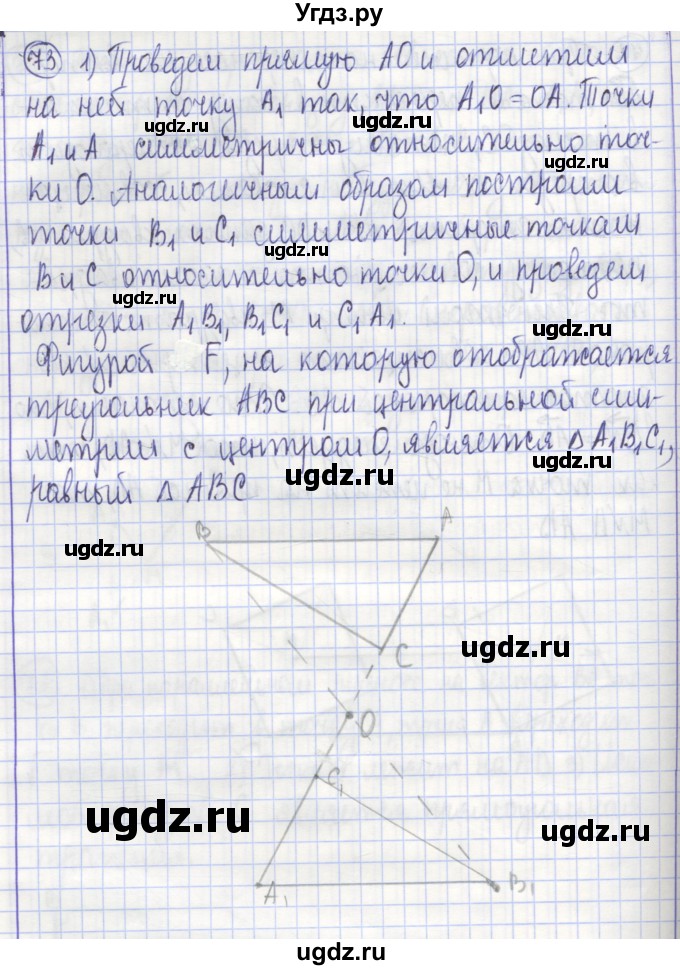 Угдз.ру
73 1) Проведем прямую АО и отметим
на ней точку А₁ так, что А₁О = ОА. Точки
А₁ и А симметричны относительно точ-
ки О. Аналогичным образом построим
точки В₁ и С₁ симметричные точкам
В и С относительно точки О, и проведем
отрезки А₁В₁, В₁С₁ и С₁А₁.
Фигурой F, на которую отображается
треугольник АВС при центральной сим-
метрии с центром О, является △ А₁В₁С₁,
равный △ АВС
ugdz.ru
ugdz.ru
ugdz.ru
ugdz.ru
ugdz.ru
ugdz.ru
ugdz.ru
ugdz.ru
ugdz.ru
ugdz.ru
ugdz.ru
ugdz.ru
В
А
С
О
С₁
А₁
В₁
ugdz.ru